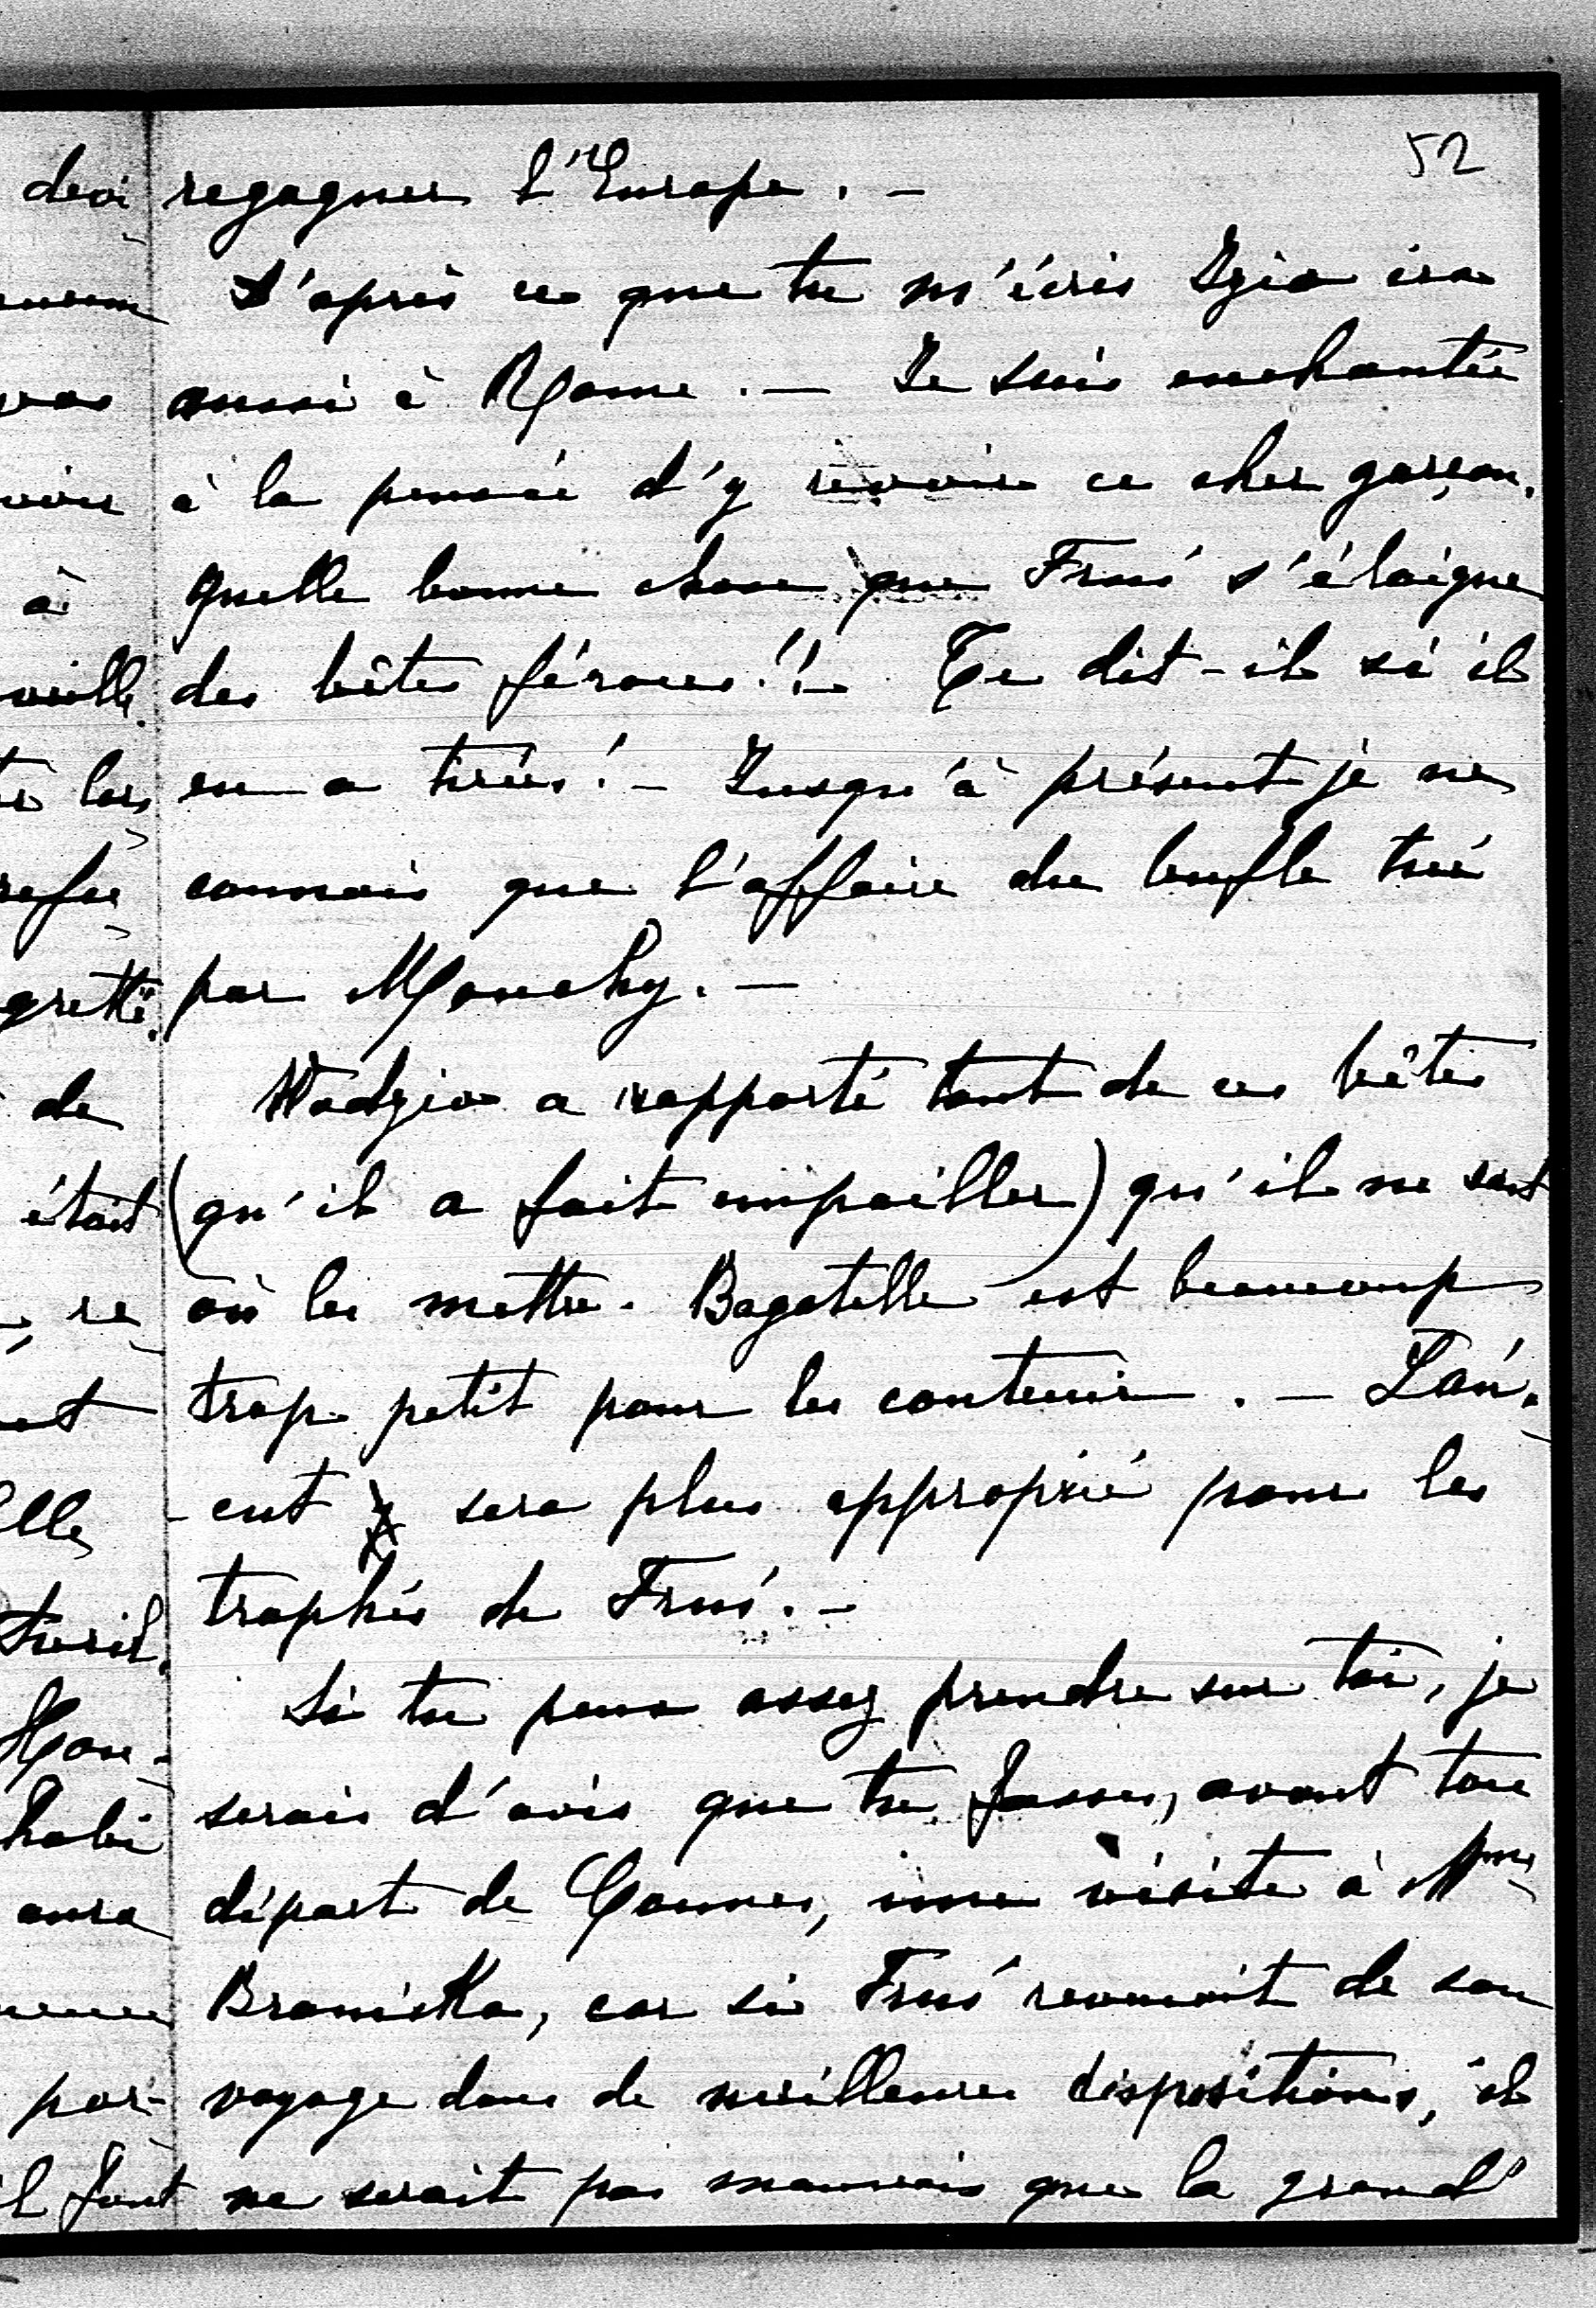 52
regagner l'Europe. –
D'après ce que tu m'écris Izio ira
aussi à Rome. – Je suis enchantée
à la pensée d'y revoir ce cher garçon.
Quelle bonne chose que Fruś s'éloigne
des bêtes féroces!! – Te dit-il si il
en a tirées! – Jusqu'à présent je ne
connais que l'affaire du bufle tué
par Mouchy. –
Wadzio a rapporté tant de ces bêtes
(qu'il a fait empailler) qu'il ne sait
où les mettre. Bagatelle est beaucoup
trop petit pour les contenir. – Łań-
-cut sera plus approprié pour les
trophés de Fruś. –
Si tu peux assez prendre sur toi, je
serais d'avis que tu fasses, avant ton
départ de Cannes, une visite à Mme
Branicka, car si Fruś revenait de son
voyage dans de meilleures dispositions, il
ne serait pas mauvais que la grand'
devi
à
de
était
, re
elle
habi
aura
par-
il faut